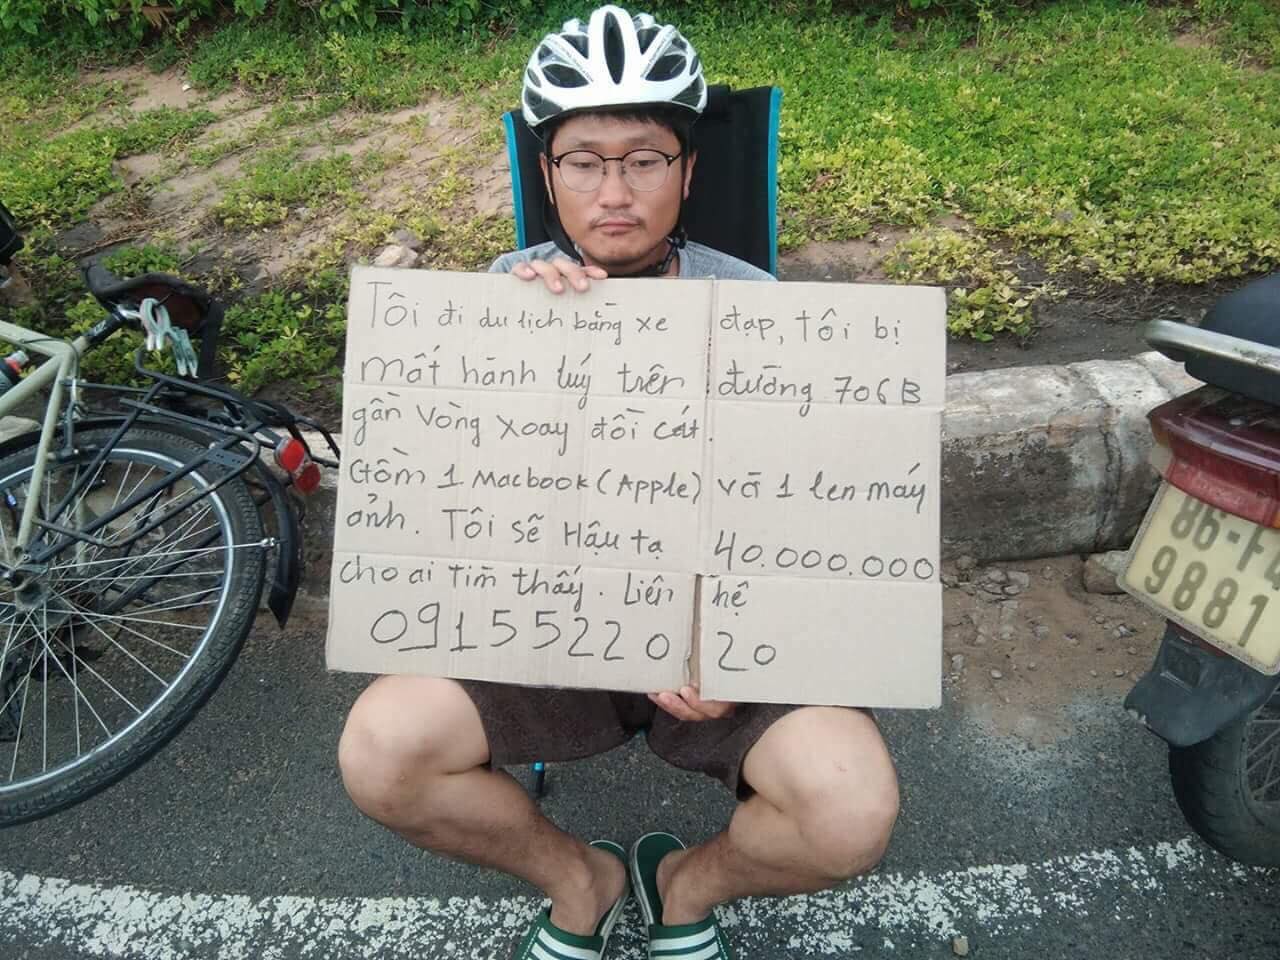 Tôi đi du lịch bằng xe đạp, tôi bị
mất hành luý trên đường 706B
gần vòng xoay đồi cát.
Gồm 1 Macbook (Apple) và 1 len máy
ảnh. Tôi sẽ Hậu tạ 40.000.000
cho ai tìm thấy. Liên hệ
0915522020
86-F
9881